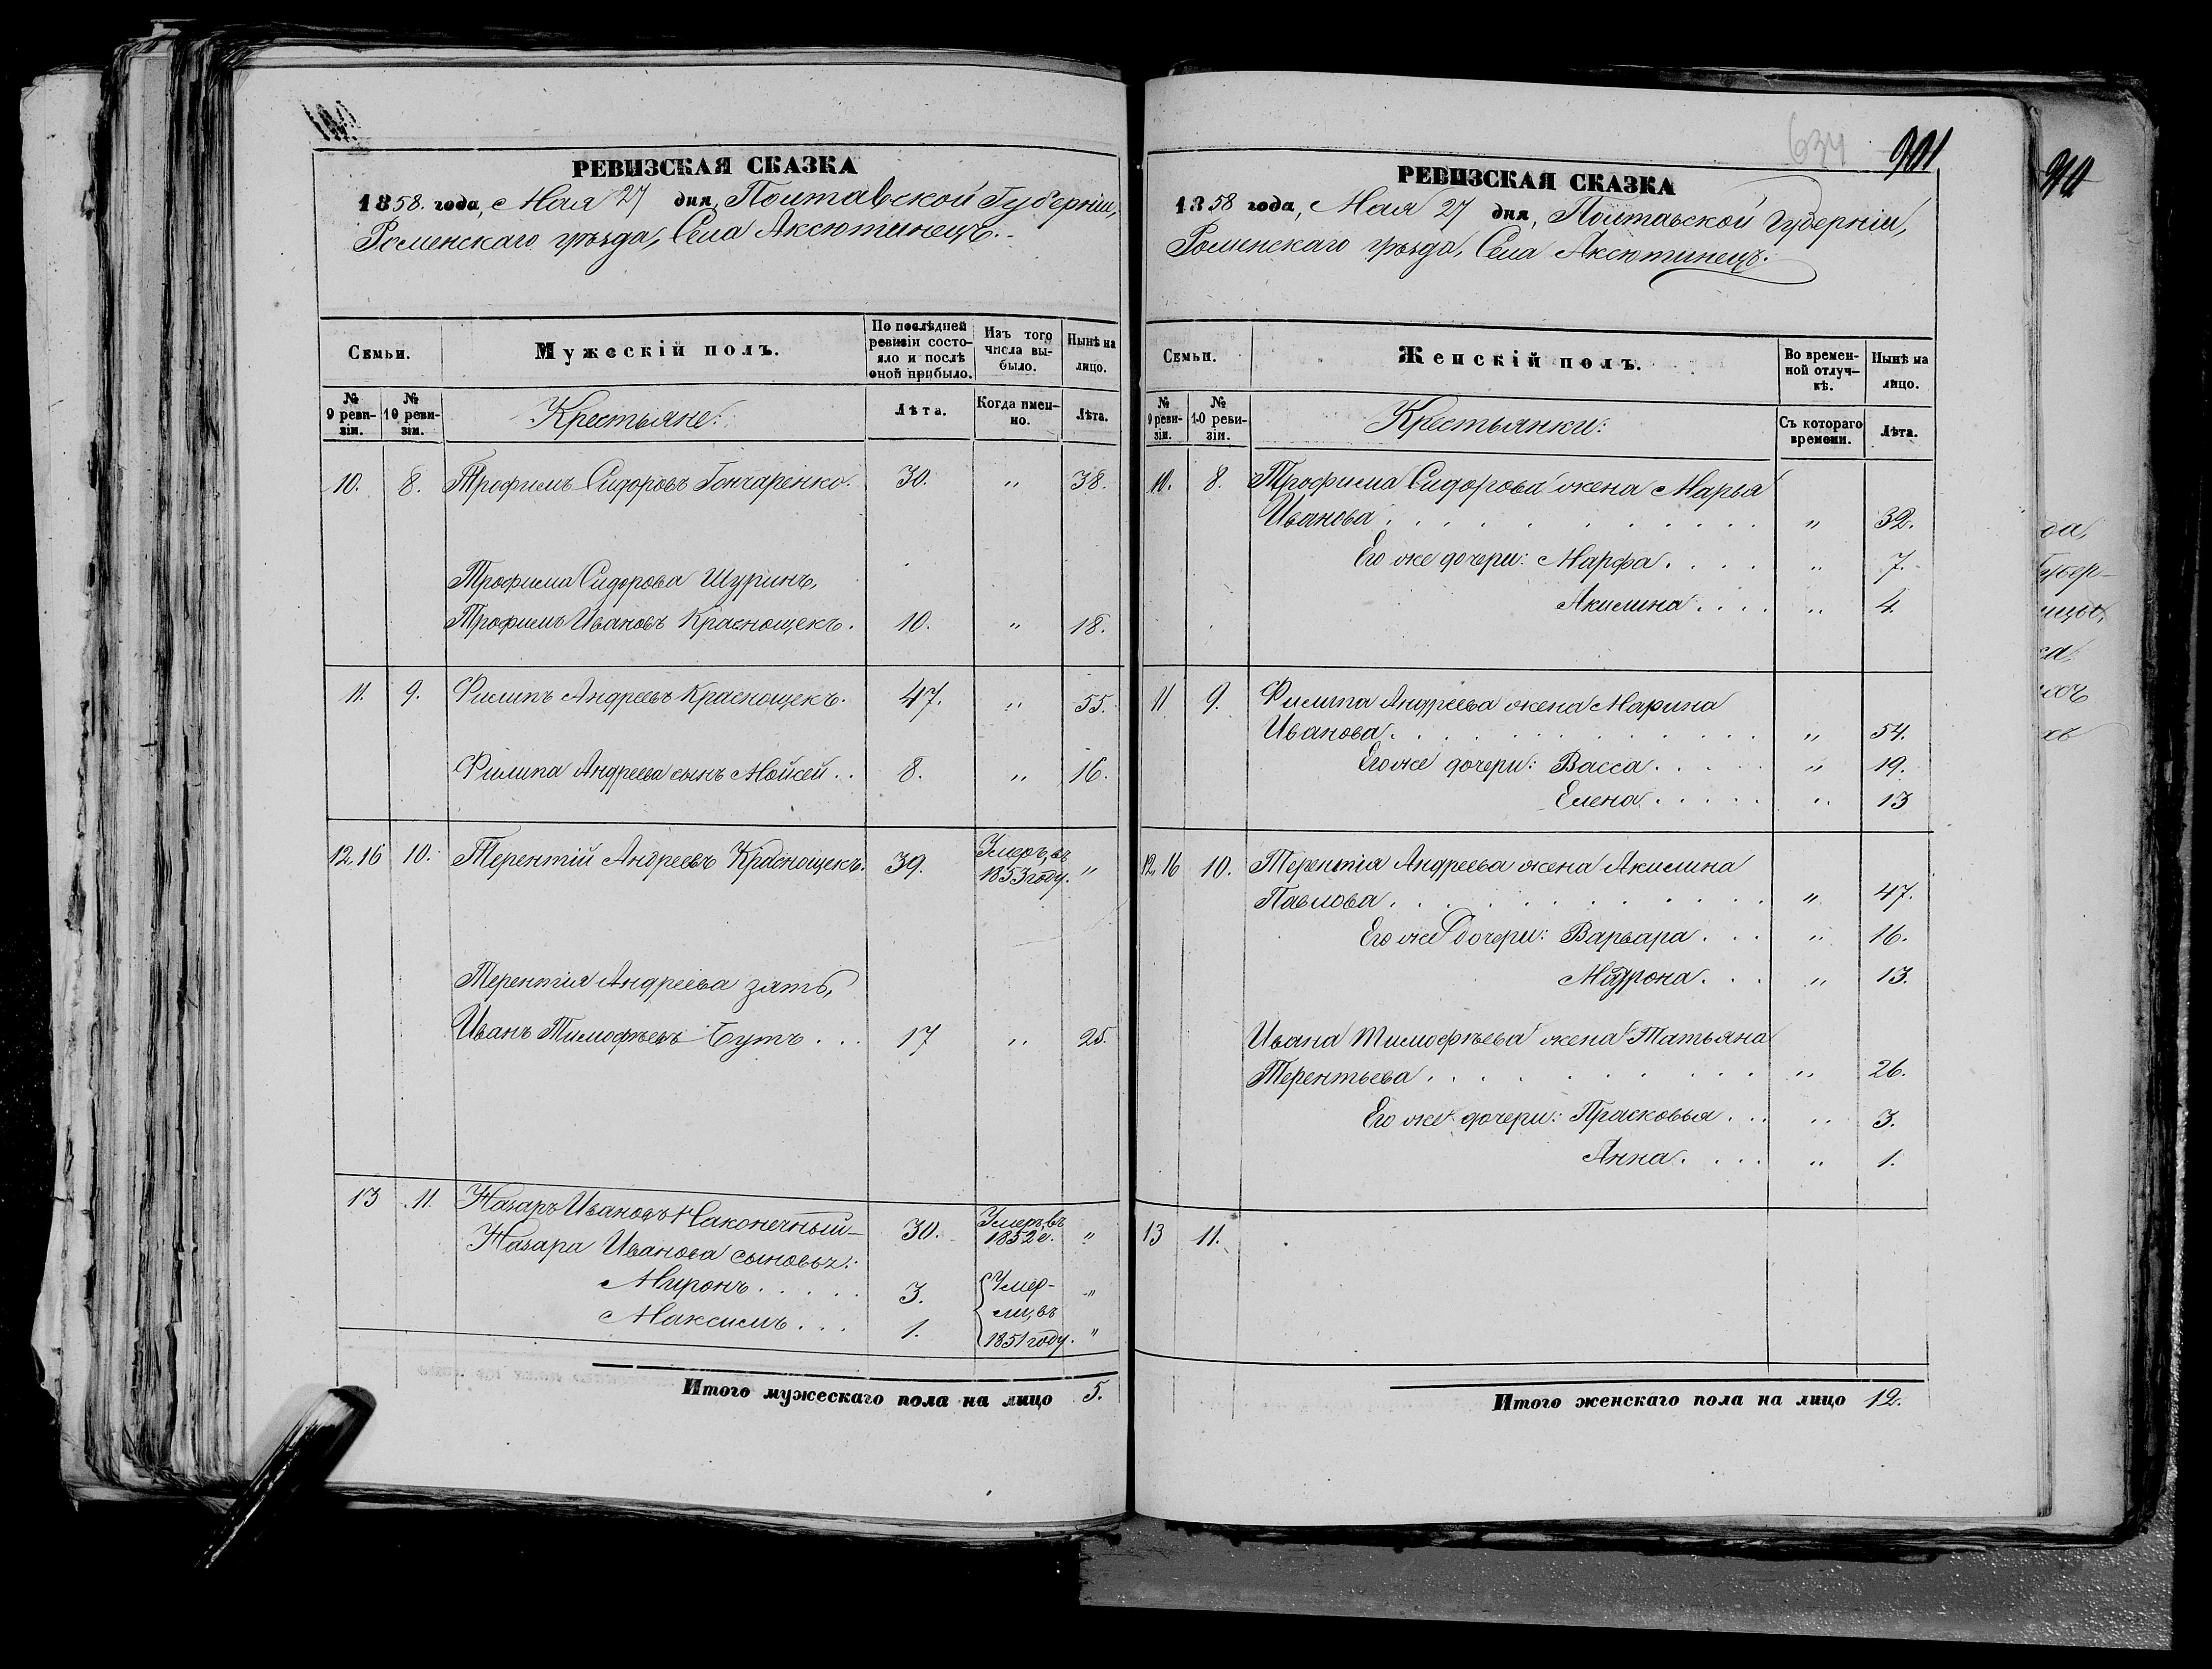 РЕВИЗСКАЯ СКАЗКА
1858. года, Мая 27 дня, Полтавской Губерніи,
Роменскаго уѣзда, Села Аксютинецъ.
Семьи.
Мужескій полъ.
По послѣдней ревизіи состояло и послѣ оной прибыло.
Изъ того числа выбыло.
Нынѣ на лицо.
№ 9 ревизіи.
№ 10 ревизіи.
Крестьяне:
Лѣта.
Когда именно.
Лѣта.
10. 8. Трофимъ Сидоровъ Гончаренко. 30. " 38.
Трофима Сидорова Шуринъ,
Трофимъ Ивановъ Краснощекъ. 10. " 18.
11. 9. Филипъ Андреевъ Краснощекъ. 47. " 55.
Филипа Андреева сынъ Мойсей . . 8. " 16.
12,16 10. Терентій Андреевъ Краснощекъ. 39. Умеръ, въ 1853 году. "
Терентія Андреева зять,
Иванъ Тимофѣевъ Бутъ . . . 17 " 25.
13 11. Назаръ Ивановъ Наконечный 30. Умеръ, въ 1852 г. "
Назара Иванова сыновья:
Миронъ . . . . . 3. Умер- "
Максимъ . . . 1. ли, въ 1851 году. "
Итого мужескаго пола на лицо 5.
634 901
РЕВИЗСКАЯ СКАЗКА
1858 года, Мая 27 дня, Полтавской Губерніи,
Роменскаго уѣзда, Села Аксютинецъ.
Семьи.
Женскій полъ.
Во временной отлучкѣ.
Нынѣ на лицо.
№ 9 ревизіи.
№ 10 ревизіи.
Крестьянки:
Съ котораго времени.
Лѣта.
10. 8. Трофима Сидорова жена Марья
Иванова . . . . . . . . . . . " 32.
Его же дочери: Марфа . . . . " 7.
Акилина . . . . " 4.
11 9. Филипа Андреева жена Марина
Иванова . . . . . . . . . . . " 54.
Его же дочери: Васса . . . . " 19.
Елена . . . . . " 13
12,16 10. Терентія Андреева жена Акилина
Павлова . . . . . . . . . . . " 47.
Его же дочери: Варвара . . . " 16.
Матрона . . . " 13.
Ивана Тимофѣева жена Татьяна
Терентьева . . . . . . . . . . " 26.
Его же дочери: Прасковья . . . " 3.
Анна . . . . " 1.
13 11.
Итого женскаго пола на лицо 12.